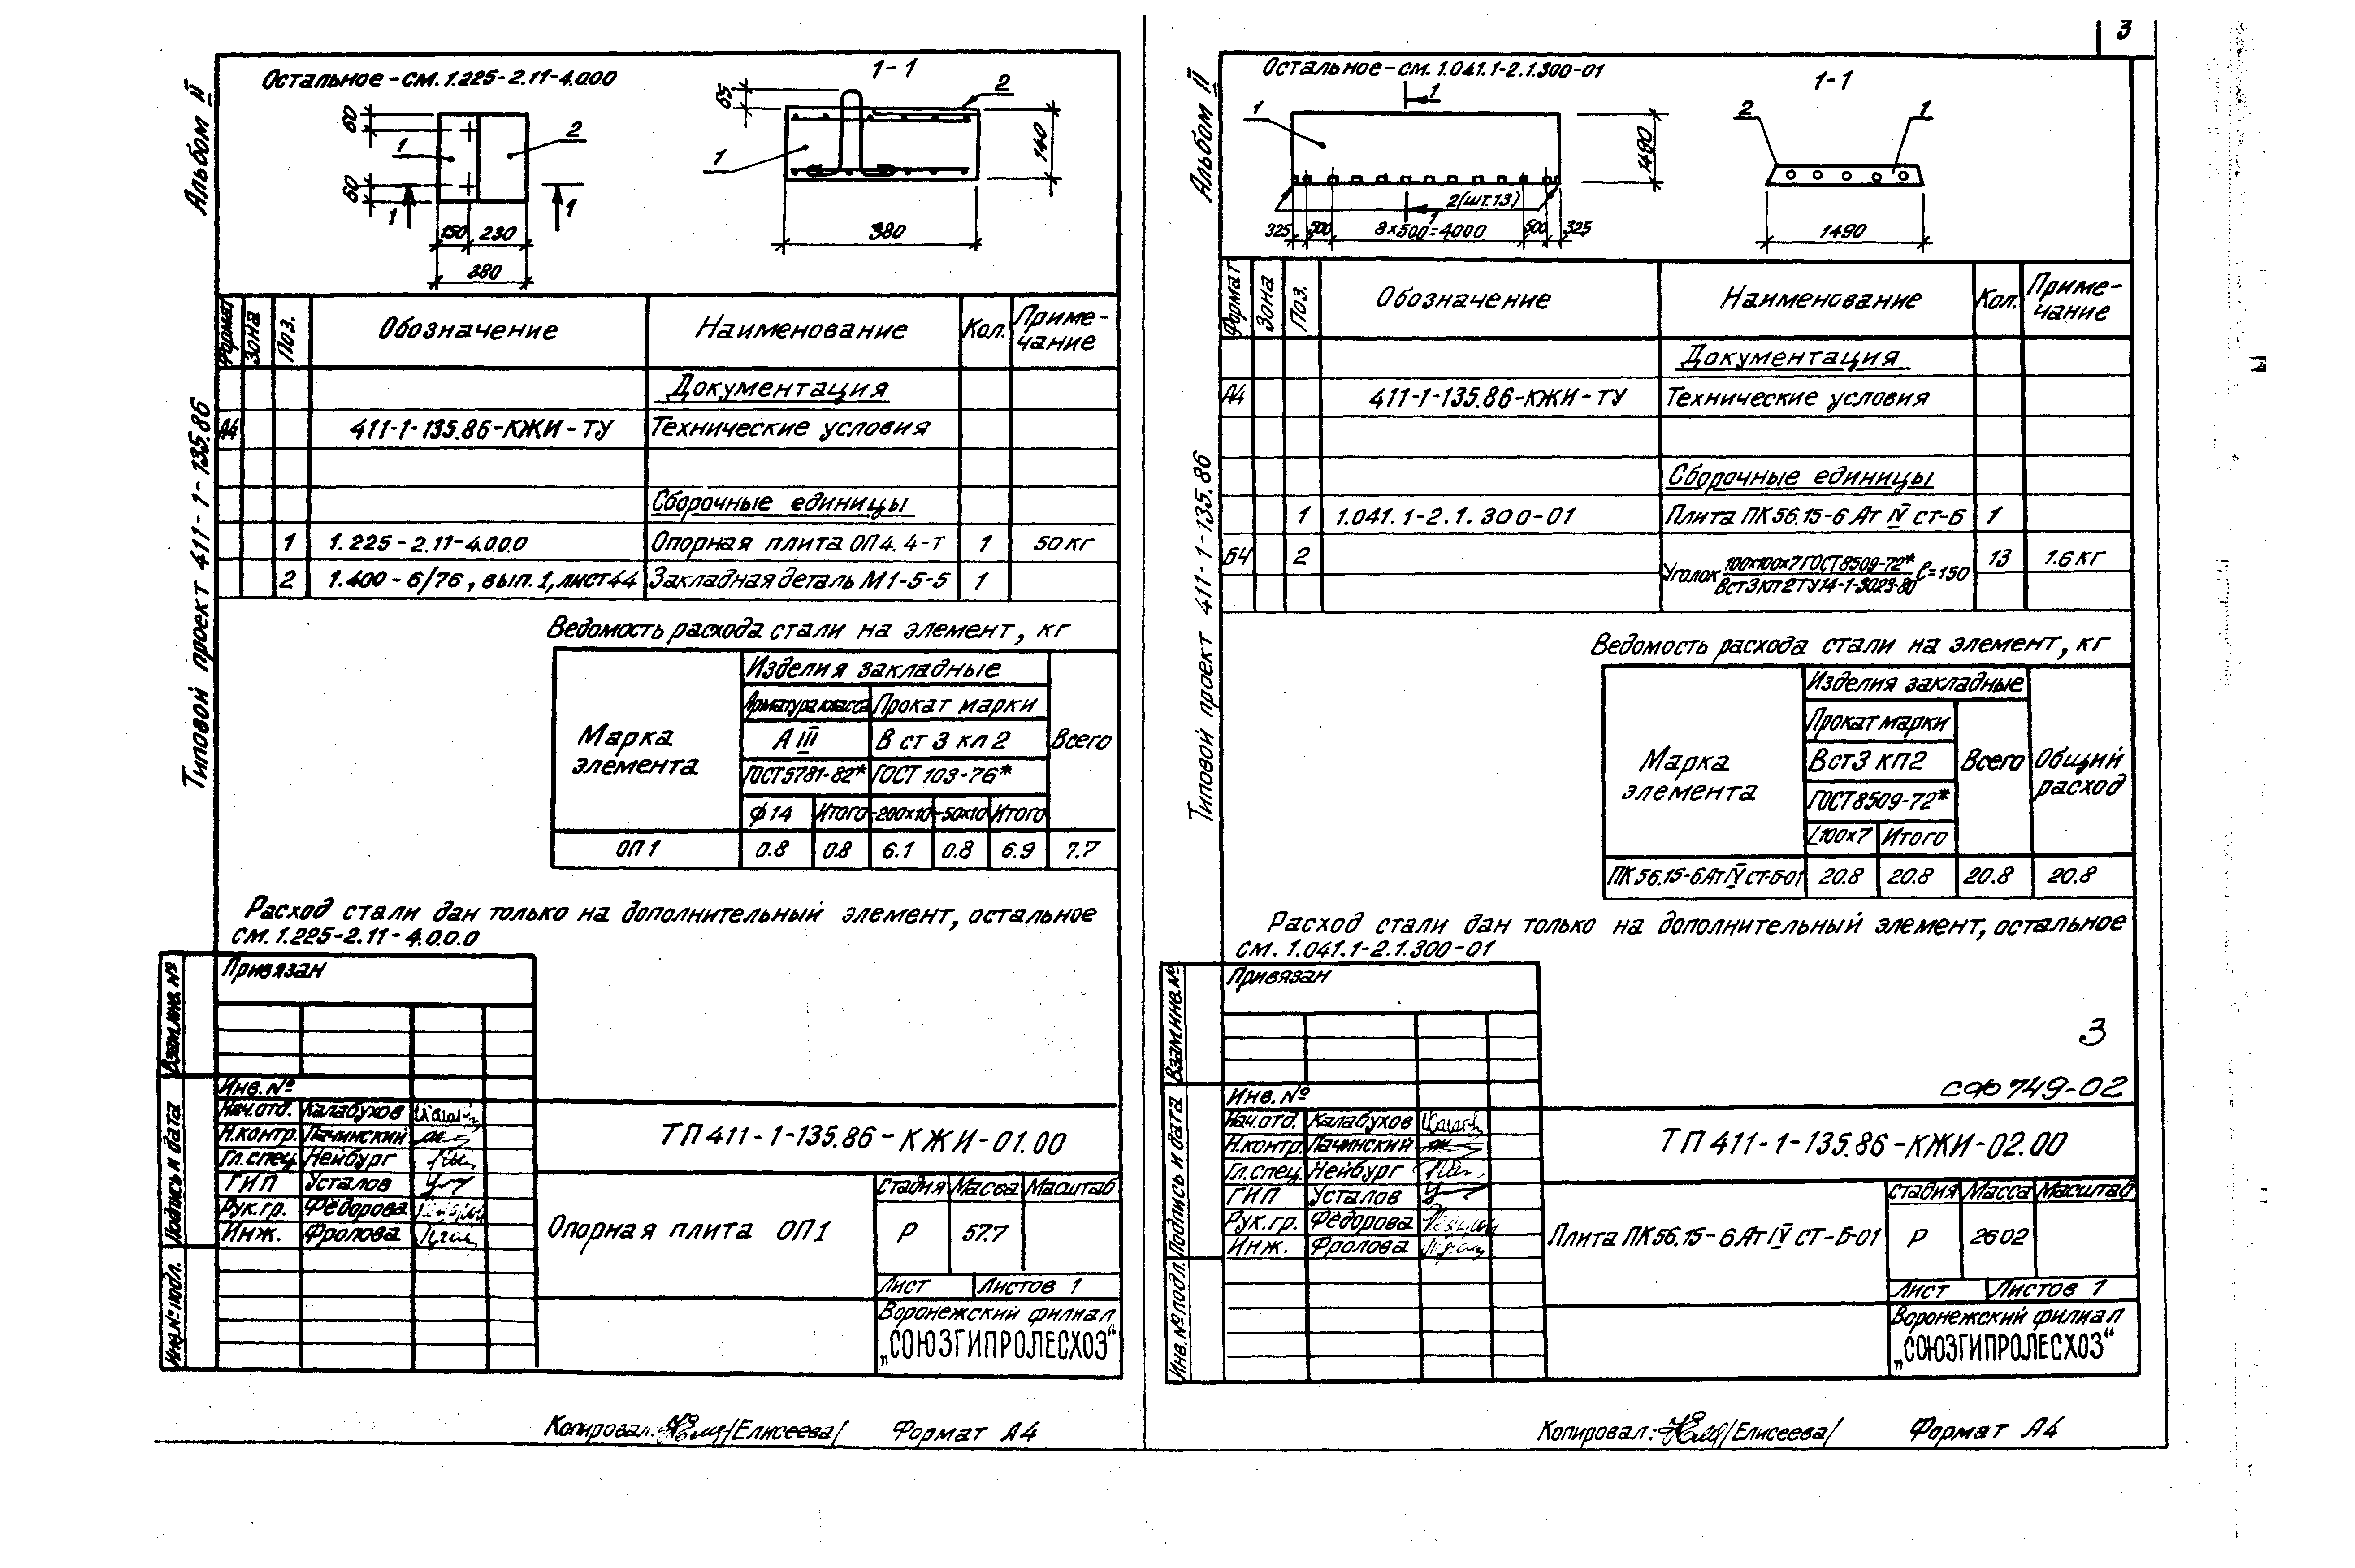 Альбом II
Типовой проект 411-1-135.86
Остальное-см. 1.225-2.11-4.0.0.0
1-1
60
60
1
2
1
1
150
230
380
65
2
1
140
380
Формат
Зона
Поз.
Обозначение
Наименование
Кол.
Приме-
чание
Документация
А4 411-1-135.86-КЖИ-ТУ Технические условия
Сборочные единицы
1 1.225-2.11-4.0.0.0 Опорная плита ОП4.4-т 1 50кг
2 1.400-6/76, вып.1, лист 44 Закладная деталь М1-5-5 1
Ведомость расхода стали на элемент, кг
Марка
элемента
Изделия закладные
Арматура класса Прокат марки
А III В ст 3 кл 2 Всего
ГОСТ 5781-82* ГОСТ 103-76*
ф14 Итого -200х10 -50х10 Итого
ОП1 0.8 0.8 6.1 0.8 6.9 7.7
Расход стали дан только на дополнительный элемент, остальное
см. 1.225-2.11-4.0.0.0
Привязан
Инв.№
Взам.инв.№
Подпись и дата
Инв.№ подл.
Нач.отд. Калабухов
Н.контр. Лачинский
Гл.спец. Нейбург
ГИП Усталов
Рук.гр. Фёдорова
Инж. Фролова
ТП 411-1-135.86-КЖИ-01.00
Опорная плита ОП1
Стадия Масса Масштаб
Р 57.7
Лист Листов 1
Воронежский филиал
„СОЮЗГИПРОЛЕСХОЗ“
Копировал: /Елисеева/ Формат А4
3
Альбом II
Типовой проект 411-1-135.86
Остальное-см. 1.041.1-2.1.300-01
1-1
1
1
2(шт.13)
1
325
500
8х500=4000
500
325
1490
2
1
1490
Формат
Зона
Поз.
Обозначение
Наименование
Кол.
Приме-
чание
Документация
А4 411-1-135.86-КЖИ-ТУ Технические условия
Сборочные единицы
1 1.041.1-2.1.300-01 Плита ПК56.15-6 Ат IV СТ-Б 1
Б4 2 Уголок 100х100х7 ГОСТ 8509-72* ℓ=150 13 1.6 кг
Вст3 кп2 ТУ14-1-3023-80
Ведомость расхода стали на элемент, кг
Марка
элемента
Изделия закладные
Прокат марки
Вст3 кп2 Всего Общий
расход
ГОСТ 8509-72*
L100х7 Итого
ПК56.15-6Ат IV СТ-Б-01 20.8 20.8 20.8 20.8
Расход стали дан только на дополнительный элемент, остальное
см. 1.041.1-2.1.300-01
Привязан
3
СФ 749-02
Инв.№
Взам.инв.№
Подпись и дата
Инв.№ подл.
Нач.отд. Калабухов
Н.контр. Лачинский
Гл.спец. Нейбург
ГИП Усталов
Рук.гр. Фёдорова
Инж. Фролова
ТП 411-1-135.86-КЖИ-02.00
Плита ПК56.15-6Ат IV СТ-Б-01
Стадия Масса Масштаб
Р 2602
Лист Листов 1
Воронежский филиал
„СОЮЗГИПРОЛЕСХОЗ“
Копировал: /Елисеева/ Формат А4